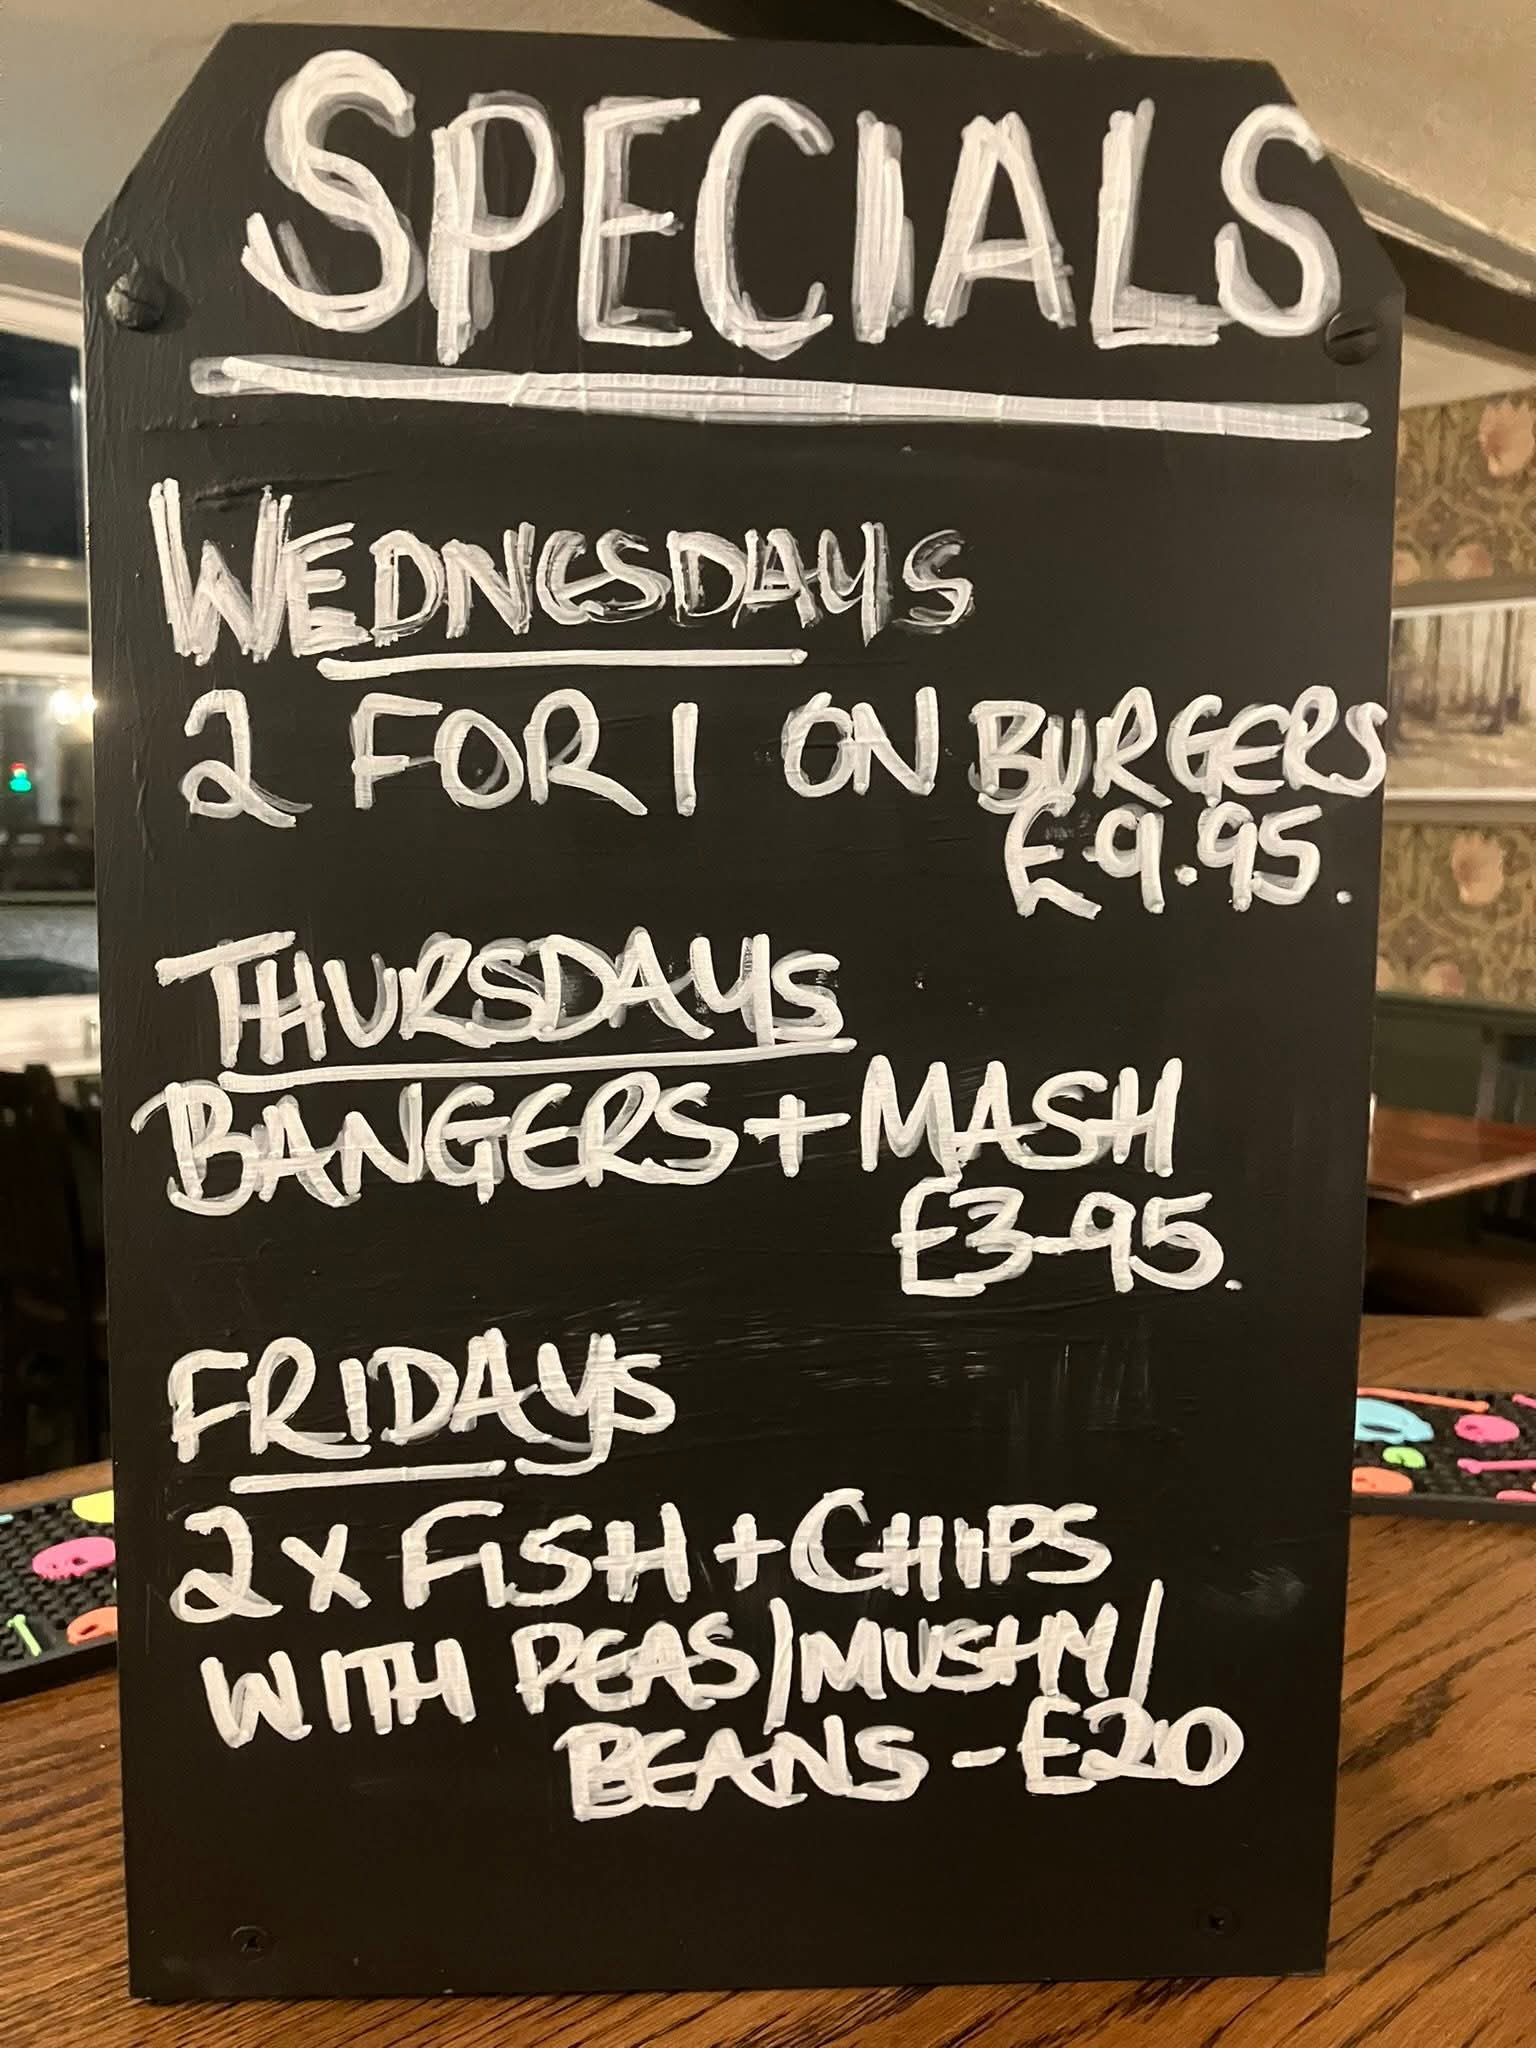 SPECIALS
WEDNESDAYS
2 FOR 1 ON BURGERS
£9.95.
THURSDAYS
BANGERS + MASH
£3-95.
FRIDAYS
2 x FISH + CHIPS
WITH PEAS/MUSHY/
BEANS - £20